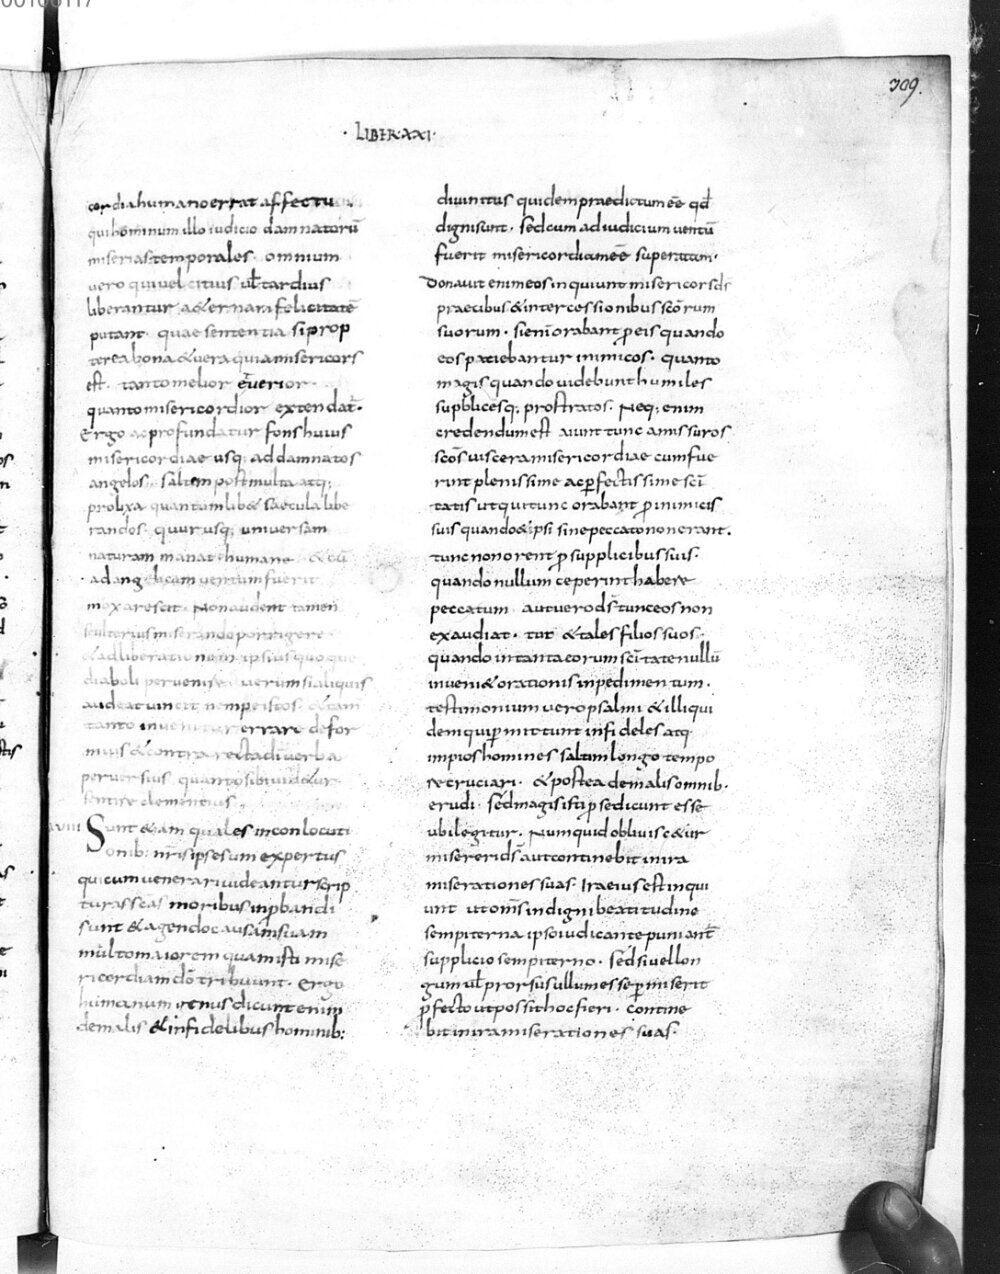 309.
· LIBER XXI ·
cordia humano errat affectu
qui hominum illo iudicio damnatorū
miserias temporales. omnium
vero qui vel citius vł tardius
liberantur aeternam felicitatē
putant. quae sententia si prop
terea bona & vera quia misericors
est. tanto melior & verior
quanto misericordior extendat̄.
Ergo ac profundatur fons huius
misericordiae usq; ad damnatos
angelos. saltem post multa atq;
prolixa quantumlib& saecula libe
randos. quur usq; universam
naturam manat humanā & cū
ad angelicam ventum fuerit
mox arescit. Non audent tamen
se ulterius miserando porrigere
& ad liberationem ipsius quoque
diaboli pervenire. verum si aliquis
audeat vincit nempe istos. & tam
tanto invenitur errare defor
mius & contra recta dī verba
perversius quanto sibi vid&ur
sentire clementius.
xviii Sunt &iam quales in conlocuti
onib: nr̄is ipse sum expertus
qui cum venerari videantur scrip
turas scas moribus inprobandi
sunt & agendo causam suam
multo maiorem quam isti mise
ricordiam dō tribuunt. Ergo
humanum genus dicunt enim
de malis & infidelibus hominib:
divinitus quidem praedictum eē qđ
digni sunt. sed cum ad iudicium ventū
fuerit misericordiam eē superaturam.
Donavit enim eos inquiunt misericors d̄s
praecibus & intercessionibus sc̄orum
suorum. si enī orabant p eis quando
eos patiebantur inimicos. quanto
magis quando videbunt humiles
supplicesq; prostratos. Neq; enim
credendum est aiunt tunc amissuros
sc̄os viscera misericordiae cum fue
rint plenissime ac pfectissime sc̄i
tatis ut qui tunc orabant p inimicis
suis quando & ipsi sine peccato non erant.
tunc non orent p supplicibus suis.
quando nullum ceperint habere
peccatum. aut vero d̄s tunc eos non
exaudiat. tot & tales filios suos.
quando in tanta eorum sc̄itate nullū
inveni& orationis inpedimentum.
testimonium vero psalmi & illi qui
dem qui pmittunt infideles atq
impios homines saltim longo tempo
re cruciari. & postea de malis omnib.
erudi. sed magis isti p se dicunt esse
ubi legitur. Numquid obliviscetur
misereri d̄s aut continebit in ira
miserationes suas. Ira eius est inqui
unt ut om̄s indigni beatitudine
sempiterna ipso iudicante puniant̄
supplicio sempiterno. sed si vel lon
gum vł prorsus ullum esse pmiserit
pfecto ut possit hoc fieri. contine
bit in ira miserationes suas.